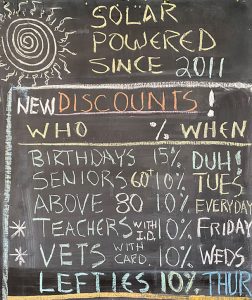 SOLAR
POWERED
SINCE 2011
NEW DISCOUNTS!
WHO % WHEN
BIRTHDAYS 15% DUH!
SENIORS 60+ 10% TUES
ABOVE 80 10% EVERYDAY
* TEACHERS WITH I.D. 10% FRIDAY
* VETS WITH CARD. 10% WEDS
LEFTIES 10% THURS